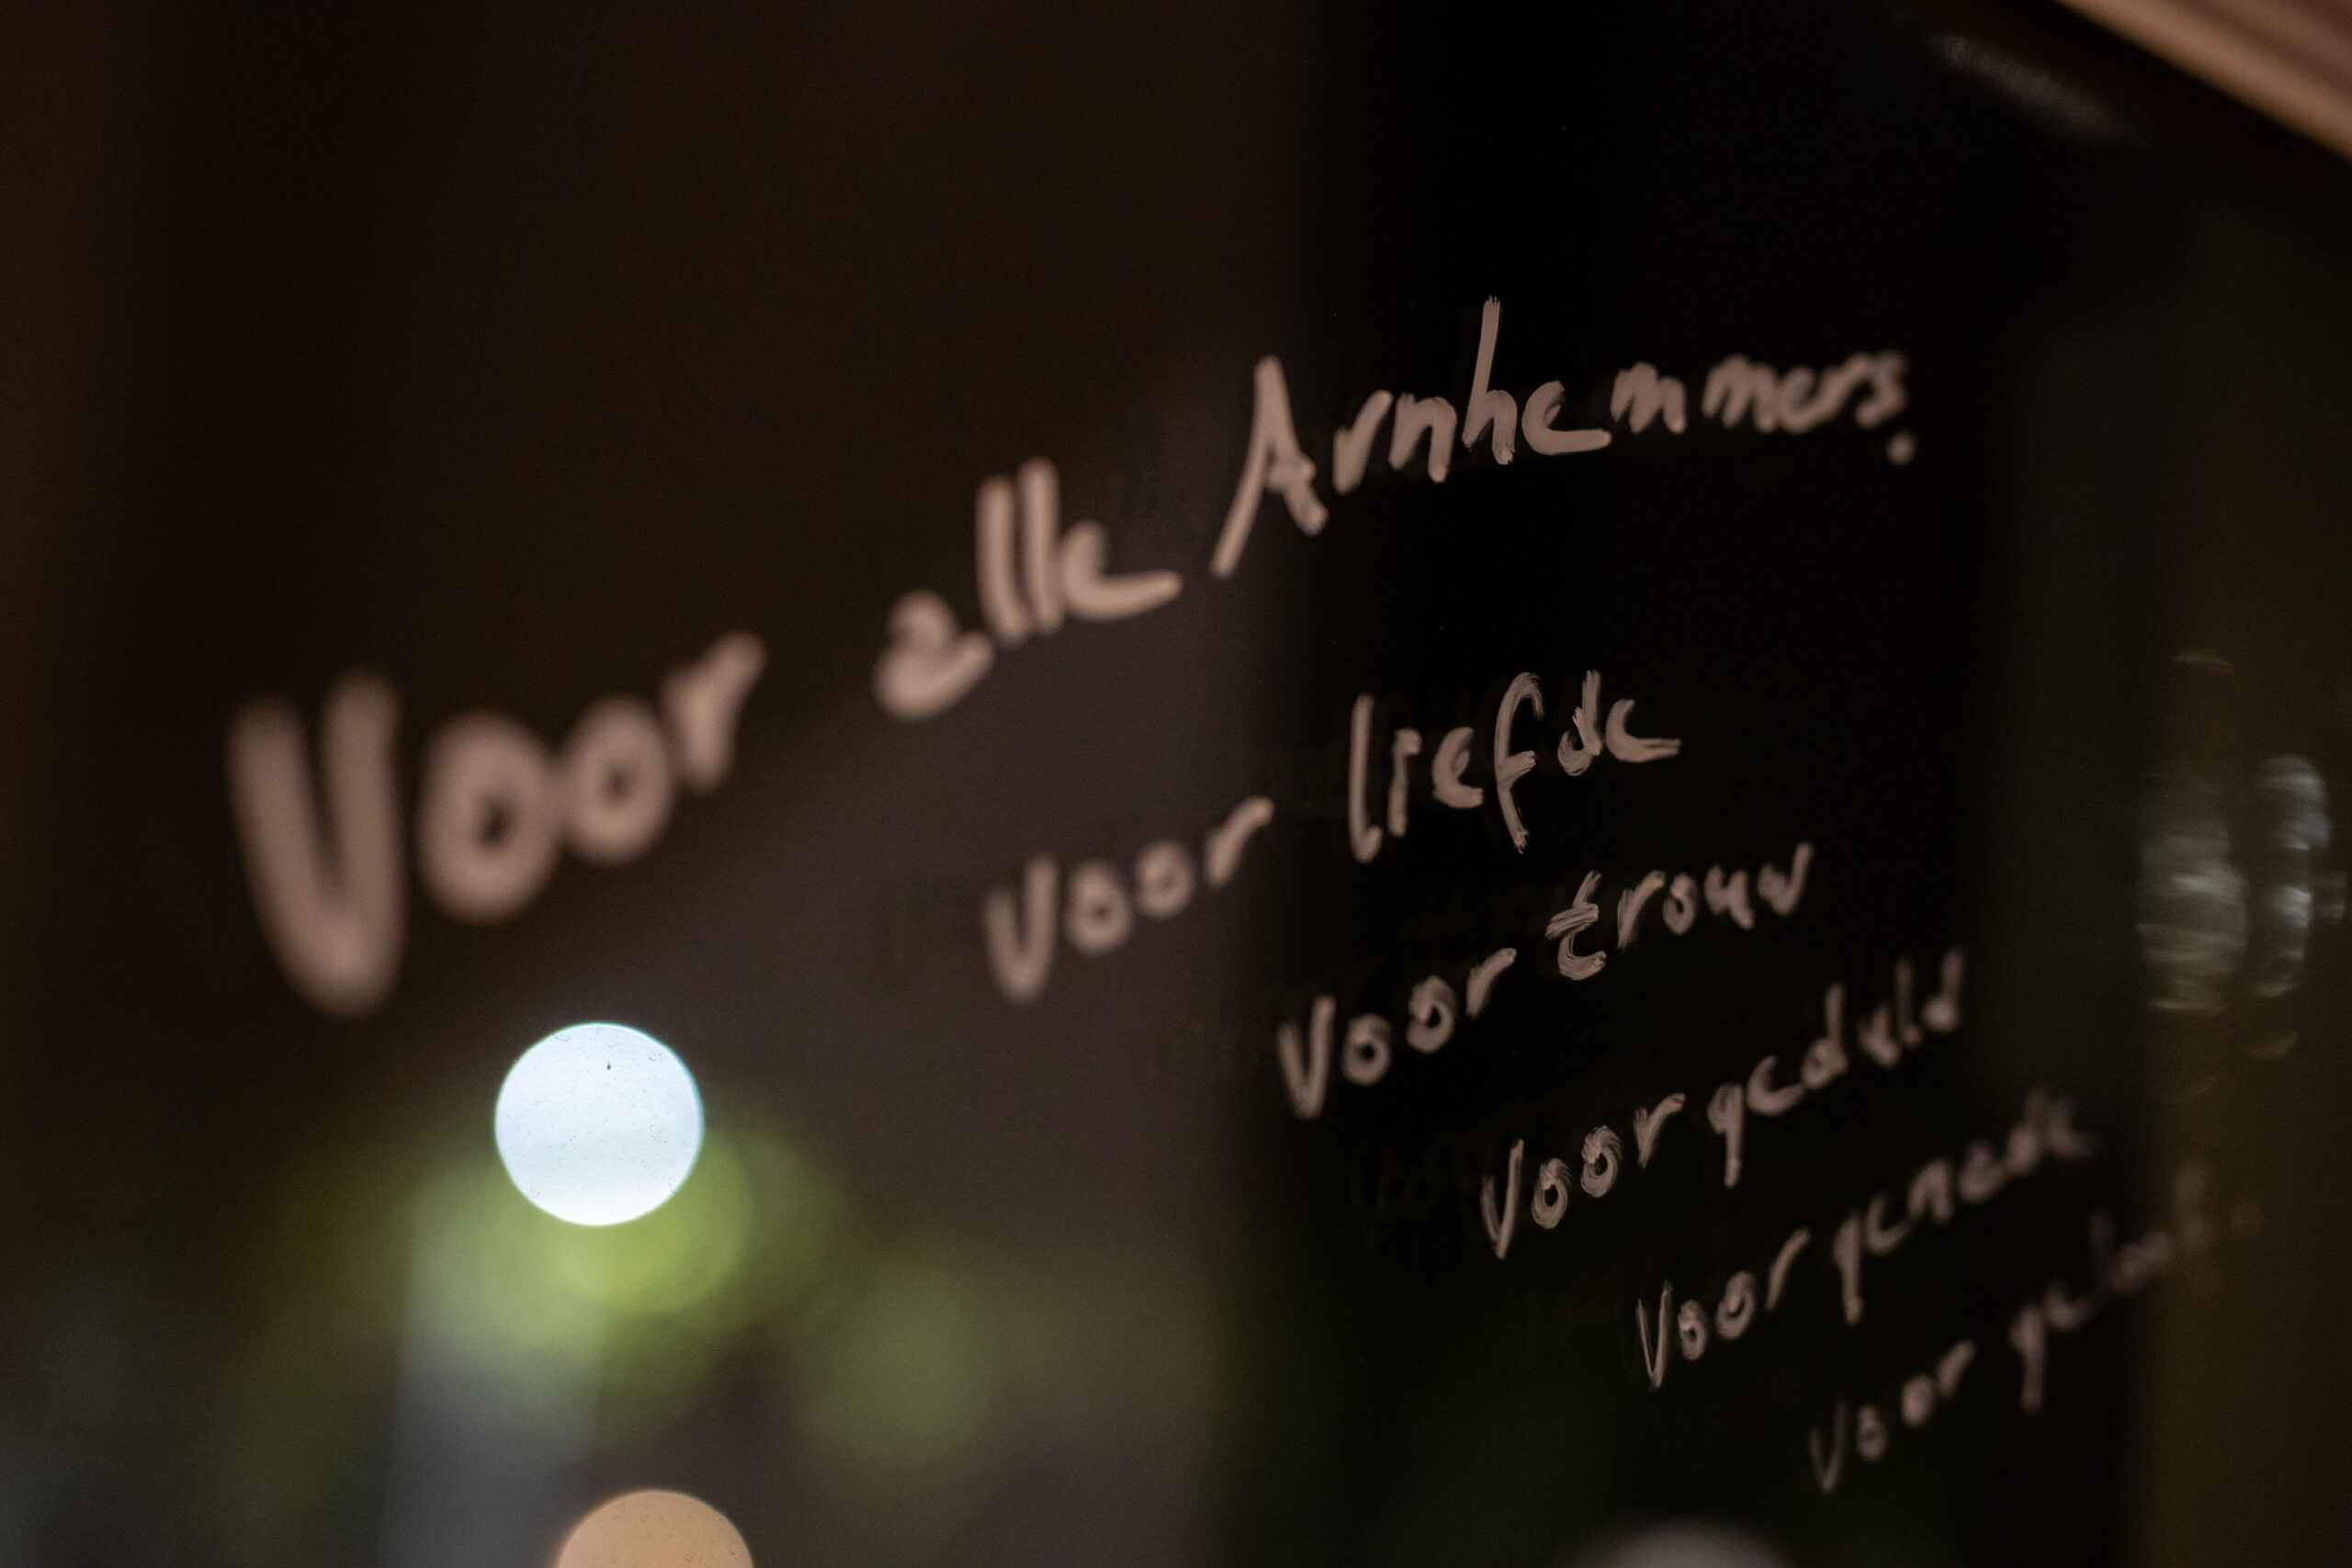 Voor alle Arnhemmers.
voor liefde
voor trouw
voor geduld
voor genade
voor